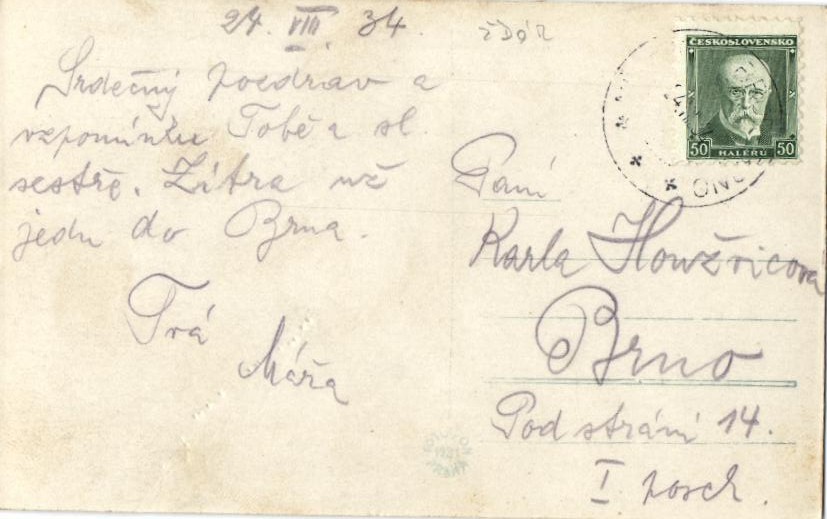 24. VIII 34.
ŽĎÁR
Srdečný pozdrav a
vzpomínku Tobě a sl.
sestře. Zítra už
jedu do Brna.
Tvá
Máňa
ČESKOSLOVENSKO
50 HALÉŘŮ 50
Paní
Karla
Brno
Pod strání 14.
I posch.